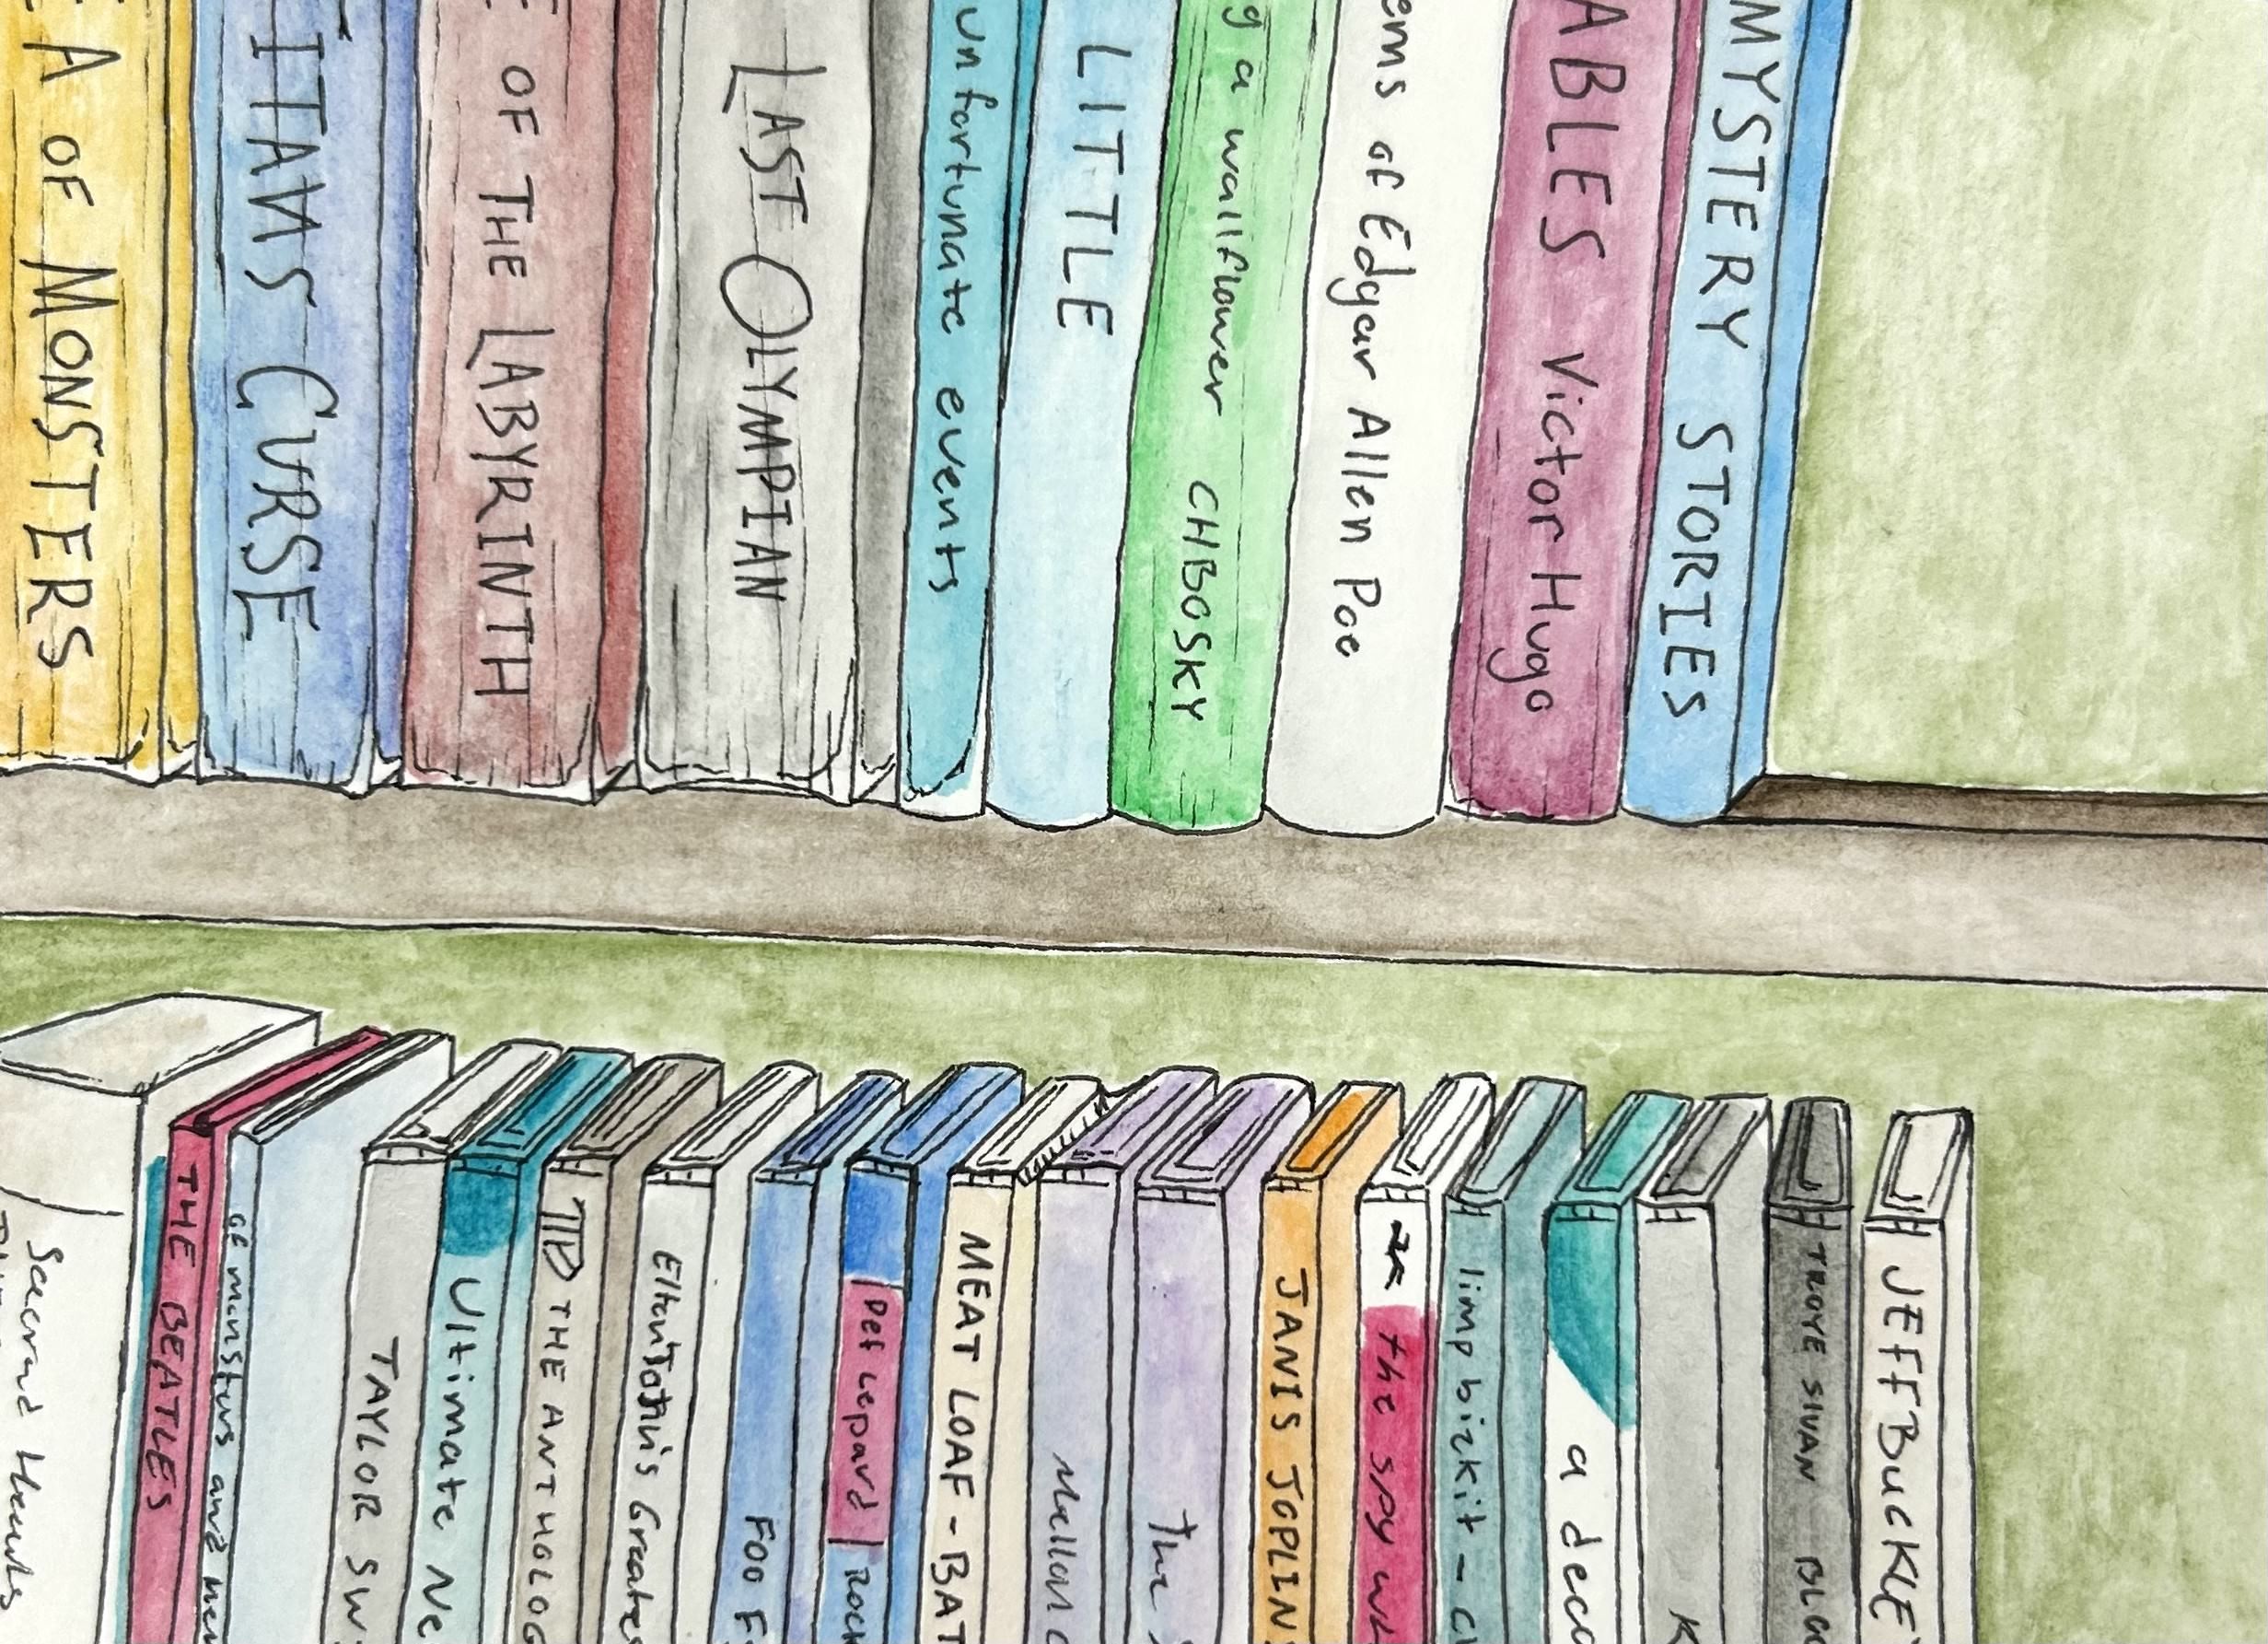 A OF MONSTERS
CURSE
OF THE LABYRINTH
LAST OLYMPIAN
unfortunate events
LITTLE
a wallflower CHBOSKY
of Edgar Allen Poe
ABLES Victor Hugo
MYSTERY STORIES
Second Hearts
THE BEATLES
of monsters and men
TAYLOR SW
Ultimate Ne
THE ANTHOLOG
Elton John's Greates
FOO F
Def Lepard Rock
MEAT LOAF - BAT
Mellon C
The
JANIS JOPLIN
the spy wh
limp bizkit - c
a deca
K
TROYE SIVAN BLU
JEFF BUCKLEY